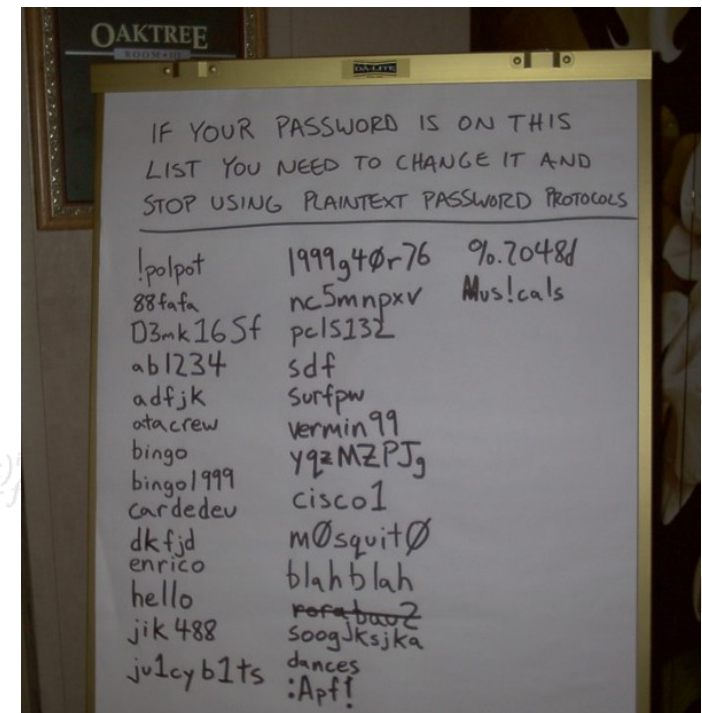 OAKTREE
ROOM • 101
DA-LITE
IF YOUR PASSWORD IS ON THIS
LIST YOU NEED TO CHANGE IT AND
STOP USING PLAINTEXT PASSWORD PROTOCOLS
!polpot
88fafa
D3mk16Sf
ab1234
adfjk
atacrew
bingo
bingo1999
cardedeu
dkfjd
enrico
hello
jik488
ju1cyb1ts
1999g4Ør76
nc5mnpxv
pclS132
sdf
surfpw
vermin99
yqzMZPJg
cisco1
mØsquitØ
blahblah
soogJksjka
dances
:Apf!
%.2048d
Mus!cals